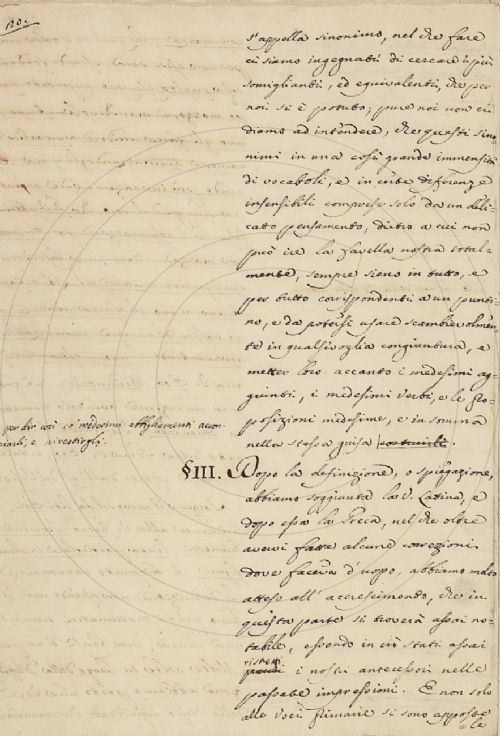 120.
s'appella sinonimo, nel che fare
ci siamo ingegnati di cercare i più
somiglianti, ed equivalenti, che per
noi si è potuto; pure noi non in-
diamo ad intendere, che questi sino-
nimi in una così grande immensità
di vocaboli, e in certe differenze
insensibili comprese solo da un deli-
cato pensamento, dietro a cui non
può ire la favella nostra total-
mente, sempre sieno in tutto, e
per tutto corrispondenti a un punti-
no, e da potersi usare scambievolmen-
te in qualsivoglia congiuntura, e
metter loro accanto i medesimi ag-
giunti, i medesimi verbi, e le pro-
posizioni medesime, e in somma
per dir così co' medesimi abbigliamenti accon-
ciarli, e rivestirgli.
nella stessa guisa costruirli.
§III. Dopo la definizione, o spiegazione,
abbiamo soggiunta la V. Latina, e
dopo essa la Greca, nel che oltre
avervi fatte alcune correzioni
dove faceva d'uopo, abbiamo molto
atteso all' accrescimento, che in
questa parte si troverà assai no-
tabile, essendo in ciò stati assai
ristretti
i nostri antecessori nelle
passate impressioni. E non solo
alle voci primarie si sono apposte
le